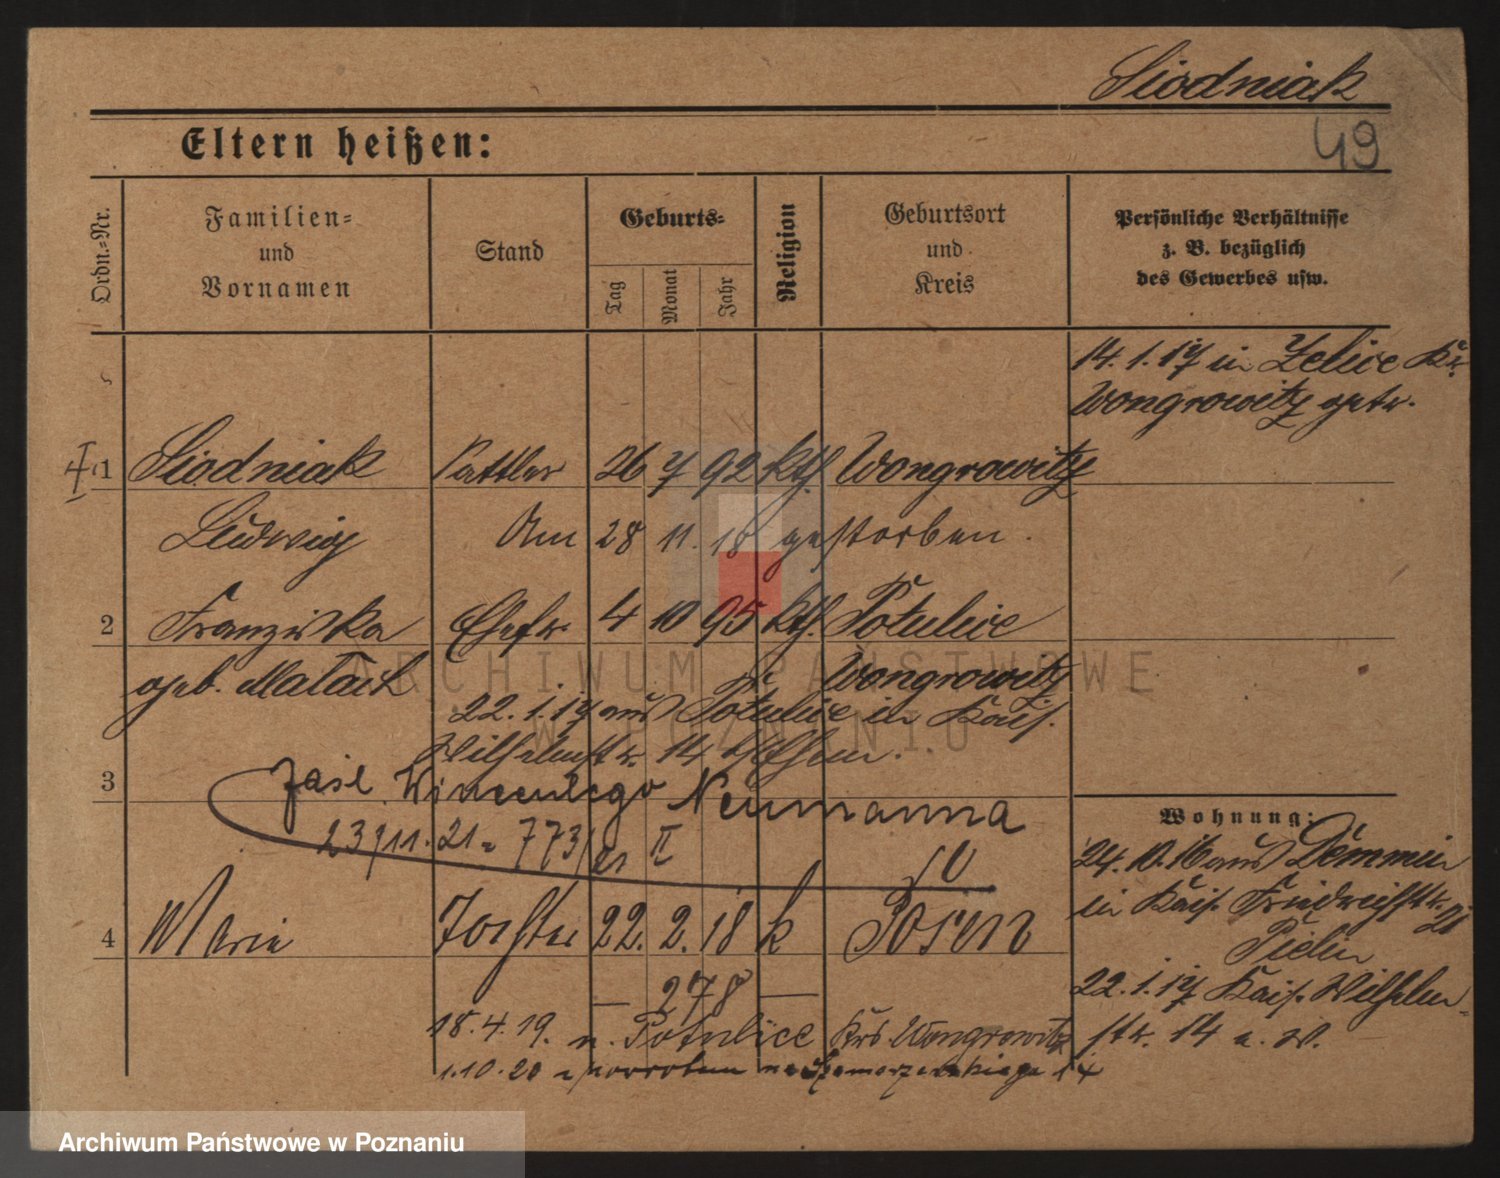 Siodniak
Eltern heißen:
49
Ordn.=Nr.
Familien=
und
Vornamen
Stand
Geburts=
Tag
Monat
Jahr
Religion
Geburtsort
und
Kreis
Persönliche Verhältnisse
z. B. bezüglich
des Gewerbes usw.
14. 1. 17 in Zelice Kr.
Wongrowitz getr.
1 Siodniak Sattler 26 7 92 kth Wongrowitz
Ludwig Am 28 11. 18 gestorben.
2 Franziska Ehefr. 4 10 95 kth. Potulice
geb. Matack Kr. Wongrowitz
22. 1. 17 aus Potulice in Kais.
Wilhelmstr. 14
3
Wincentego Neumanna
23/11. 21 773/21 II
4 Marie Tochter 22. 2. 18 k Posen
— 278 —
18. 4. 19. n. Potulice Krs. Wongrowitz
1.10.20 z powrotem na 14
Wohnung:
24. 10. 16 aus Demmin
in Kais. Friedrichstr. 21
22. 1. 17 Kais. Wilhelm-
str. 14 a. W.
ARCHIWUM PAŃSTWOWE
W POZNANIU
Archiwum Państwowe w Poznaniu